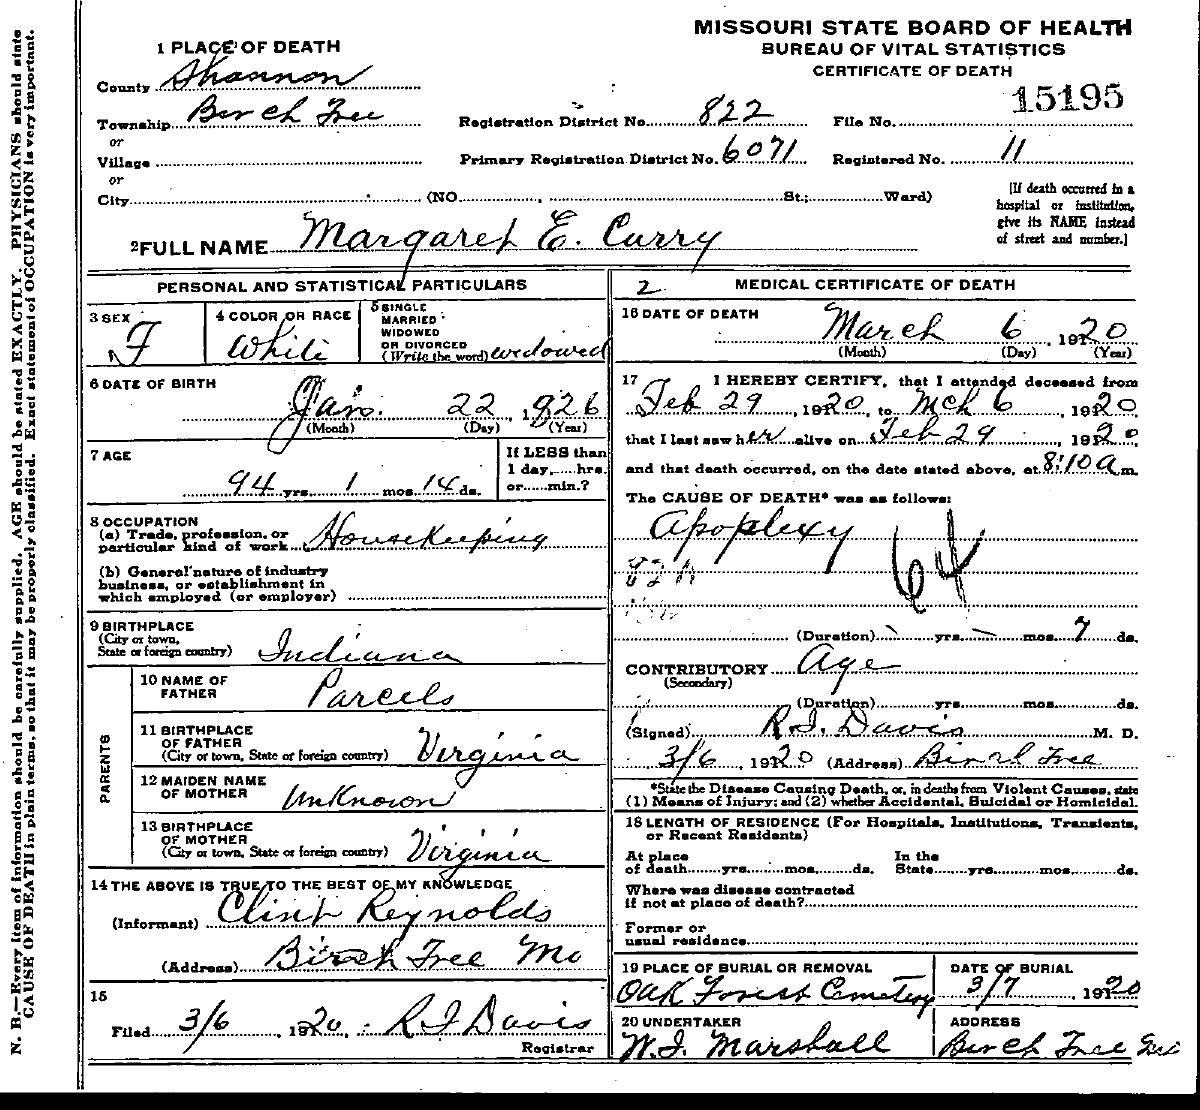 MISSOURI STATE BOARD OF HEALTH
BUREAU OF VITAL STATISTICS
CERTIFICATE OF DEATH
1 PLACE OF DEATH
County Shannon
Township Birch Tree
or
Village
or
City (NO. St.; Ward)
Registration District No. 822 File No. 15195
Primary Registration District No. 6071 Registered No. 11
[If death occurred in a
hospital or institution,
give its NAME instead
of street and number.]
2 FULL NAME Margaret E. Curry
PERSONAL AND STATISTICAL PARTICULARS
3 SEX F
4 COLOR OR RACE White
5 SINGLE
MARRIED
WIDOWED
OR DIVORCED
(Write the word) widowed
6 DATE OF BIRTH Jan. 22, 1826
(Month) (Day) (Year)
7 AGE 94 yrs. 1 mos. 14 ds.
If LESS than
1 day,......hrs.
or......min.?
8 OCCUPATION
(a) Trade, profession, or
particular kind of work Housekeeping
(b) General nature of industry
business, or establishment in
which employed (or employer)
9 BIRTHPLACE
(City or town,
State or foreign country) Indiana
PARENTS
10 NAME OF
FATHER Parcels
11 BIRTHPLACE
OF FATHER
(City or town, State or foreign country) Virginia
12 MAIDEN NAME
OF MOTHER Unknown
13 BIRTHPLACE
OF MOTHER
(City or town, State or foreign country) Virginia
14 THE ABOVE IS TRUE TO THE BEST OF MY KNOWLEDGE
(Informant) Clint Reynolds
(Address) Birch Tree Mo
15
Filed 3/6, 1920. R I Davis
Registrar
2 MEDICAL CERTIFICATE OF DEATH
16 DATE OF DEATH March 6, 1920
(Month) (Day) (Year)
17 I HEREBY CERTIFY, that I attended deceased from
Feb 29, 1920, to Mch 6, 1920
that I last saw her alive on Feb 29, 1920
and that death occurred, on the date stated above, at 8:10 a m.
The CAUSE OF DEATH* was as follows:
Apoplexy
64
(Duration) — yrs. — mos. 7 ds.
CONTRIBUTORY Age
(Secondary)
(Duration) yrs. mos. ds.
(Signed) R. I. Davis M. D.
3/6, 1920 (Address) Birch Tree
*State the Disease Causing Death, or, in deaths from Violent Causes, state
(1) Means of Injury; and (2) whether Accidental, Suicidal or Homicidal.
18 LENGTH OF RESIDENCE (For Hospitals, Institutions, Transients,
or Recent Residents)
At place In the
of death........yrs........mos........ds. State......yrs........mos........ds.
Where was disease contracted
if not at place of death?
Former or
usual residence
19 PLACE OF BURIAL OR REMOVAL DATE OF BURIAL
Oak Forest Cemetery 3/7, 1920
20 UNDERTAKER ADDRESS
W. I. Marshall Birch Tree
N. B.—Every item of information should be carefully supplied. AGE should be stated EXACTLY. PHYSICIANS should state
CAUSE OF DEATH in plain terms, so that it may be properly classified. Exact statement of OCCUPATION is very important.